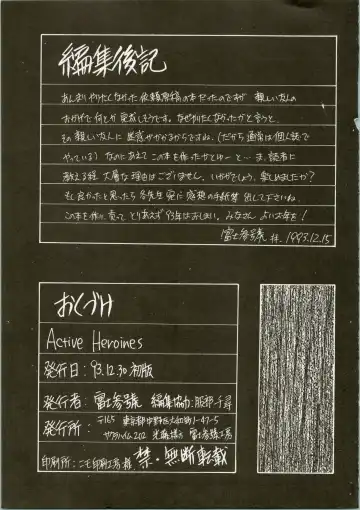 編集後記
あんまりやりたくなかった依頼原稿の本だったのですが 親しい友人の
おかげで何とか完成しそうです。なぜやりたくなかったかと言うと、
その親しい友人に迷惑がかかるからですね。(だから通常は個人誌で
やっている) なのにあえてこの本を作ったかとゆーと〜 ま、読者に
教える程 大層な理由はございません。いかがでしょう、楽しめましたか?
もし良かったと思ったら各先生宛に感想の手紙等 出して下さいね。
この本を作り、売って、とりあえず93年はおしまい。みなさん よいお年を!
富士参號 拝. 1993.12.15
おくづけ
Active Heroines
発行日:93.12.30.初版
発行者:富士参號 編集協力:服部千尋
発行所:〒165 東京都中野区大和町1-47-5
サクラハイム202 様方 富士参號工房
印刷所:ニモ印刷工房 様 禁・無断転載